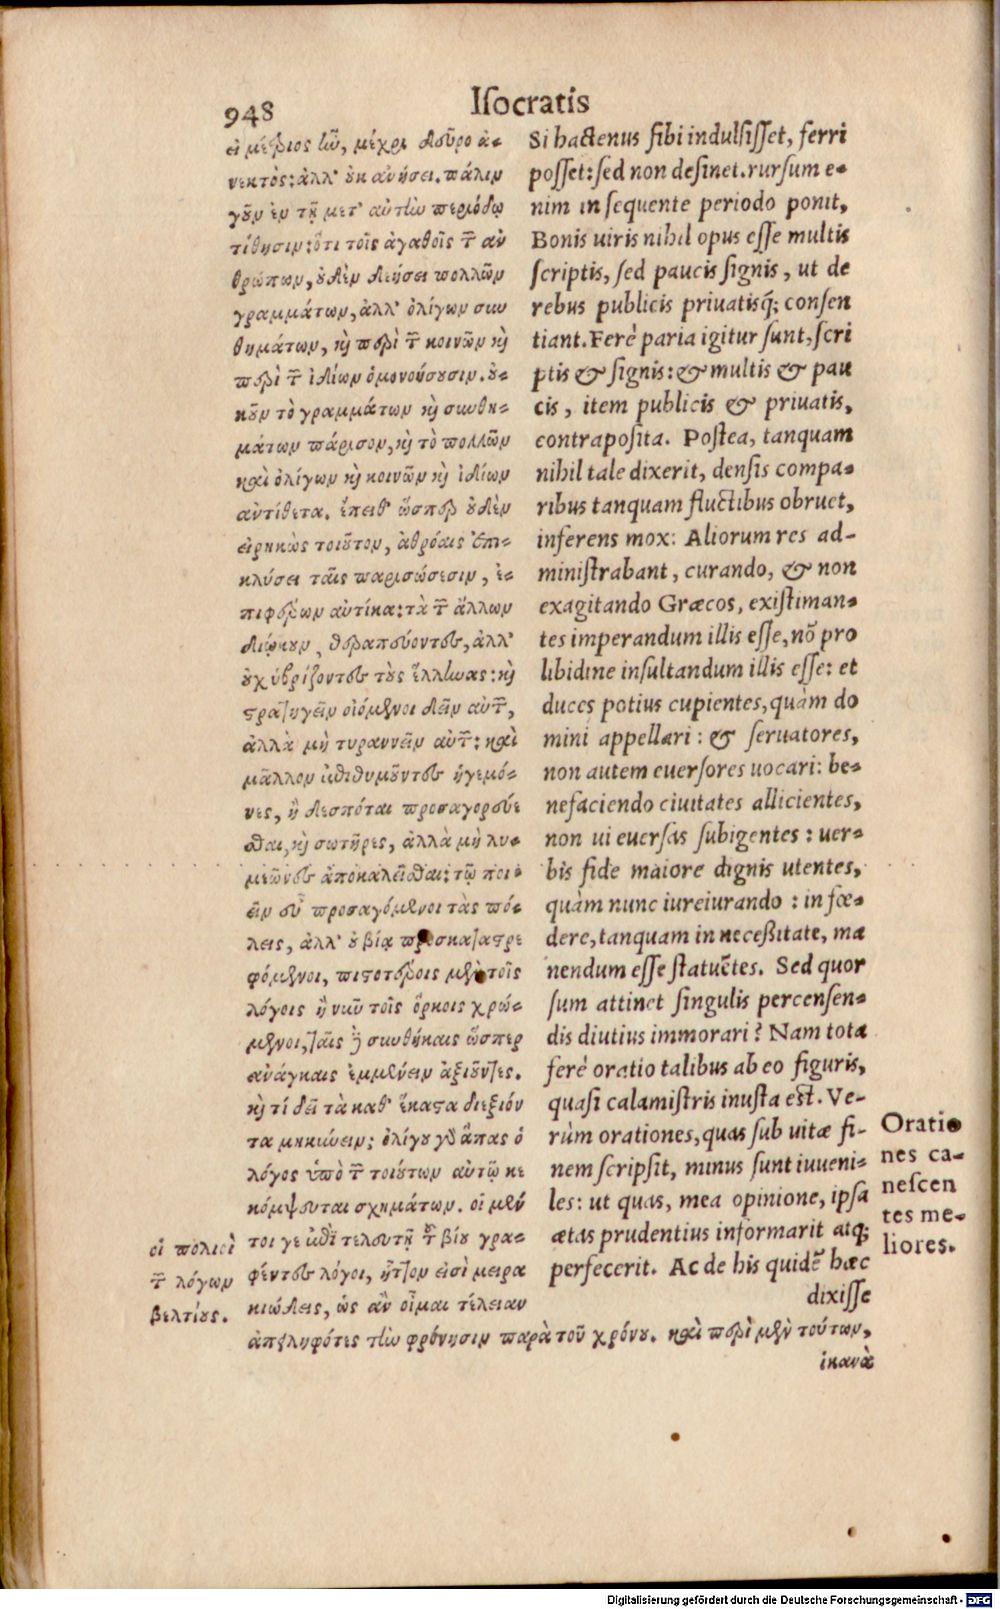 948
Isocratis
εἰ μέτριος ἦν, μέχρι δεῦρο ἀ-
νεκτὸς: ἀλλ' οὐκ ἀνήσει. πάλιν
γοῦν ἐν τῇ μετ' αὐτὴν περιόδῳ
τίθησιν: ὅτι τοῖς ἀγαθοῖς τῶν ἀν
θρώπων, οὐδὲν δεήσει πολλῶν
γραμμάτων, ἀλλ' ὀλίγων συν
θημάτων, καὶ περὶ τῶν κοινῶν καὶ
περὶ τῶν ἰδίων ὁμονοήσουσιν. οὐ-
κοῦν τὸ γραμμάτων καὶ συνθη-
μάτων πάρισον, καὶ τὸ πολλῶν
καὶ ὀλίγων καὶ κοινῶν καὶ ἰδίων
ἀντίθετα. ἔπειθ' ὥσπερ οὐδὲν
εἰρηκὼς τοιοῦτον, ἀθρόαις ἐπι-
κλύσει ταῖς παρισώσεσιν, ἐ-
πιφέρων αὐτίκα: τὰ τῶν ἄλλων
διῴκουν, θεραπεύοντες, ἀλλ'
οὐχ ὑβρίζοντες τοὺς ἕλληνας: καὶ
στρατηγεῖν οἰόμενοι δεῖν αὐτῶν,
ἀλλὰ μὴ τυραννεῖν αὐτῶν: καὶ
μᾶλλον ἐπιθυμοῦντες ἡγεμό-
νες, ἢ δεσπόται προσαγορεύε
σθαι, καὶ σωτῆρες, ἀλλὰ μὴ λυ-
μεῶνες ἀποκαλεῖσθαι: τῷ ποι-
εῖν εὖ προσαγόμενοι τὰς πό-
λεις, ἀλλ' οὐ βίᾳ προσκαταστρε
φόμενοι, πιστοτέροις μὲν τοῖς
λόγοις ἢ νῦν τοῖς ὅρκοις χρώ-
μενοι, ταῖς δὲ συνθήκαις ὥσπερ
ἀνάγκαις ἐμμένειν ἀξιοῦντες.
καὶ τί δεῖ τὰ καθ' ἕκαστα διεξιόν
τα μηκύνειν; ὀλίγου γὰρ ἅπας ὁ
λόγος ὑπὸ τῶν τοιούτων αὐτῷ κε
κόμψευται σχημάτων. οἱ μέν
τοι γε ἐπὶ τελευτῇ τοῦ βίου γρα-
φέντες λόγοι, ἧττον εἰσὶ μειρα
κιώδεις, ὡς ἂν οἶμαι τέλειαν
ἀπειληφότες τὴν φρόνησιν παρὰ τοῦ χρόνου. καὶ περὶ μὲν τούτων,
ἱκανὰ
οἱ πολιοὶ
τῶν λόγων
βελτίους.
Si hactenus sibi indulsisset, ferri
posset: sed non desinet. rursum e-
nim in sequente periodo ponit,
Bonis uiris nihil opus esse multis
scriptis, sed paucis signis, ut de
rebus publicis priuatisq; consen
tiant. Ferè paria igitur sunt, scri
ptis & signis: & multis & pau
cis, item publicis & priuatis,
contraposita. Postea, tanquam
nihil tale dixerit, densis compa-
ribus tanquam fluctibus obruet,
inferens mox: Aliorum res ad-
ministrabant, curando, & non
exagitando Græcos, existiman-
tes imperandum illis esse, nō pro
libidine insultandum illis esse: et
duces potius cupientes, quàm do
mini appellari: & seruatores,
non autem euersores uocari: be-
nefaciendo ciuitates allicientes,
non ui euersas subigentes: uer-
bis fide maiore dignis utentes,
quàm nunc iureiurando: in fœ-
dere, tanquam in necessitate, ma
nendum esse statuētes. Sed quor
sum attinet singulis percensen-
dis diutius immorari? Nam tota
ferè oratio talibus ab eo figuris,
quasi calamistris inusta est. Ve-
rùm orationes, quas sub uitæ fi-
nem scripsit, minus sunt iuueni-
les: ut quas, mea opinione, ipsa
ætas prudentius informarit atq;
perfecerit. Ac de his quidē hæc
dixisse
Oratio
nes ca-
nescen
tes me-
liores.
Digitalisierung gefördert durch die Deutsche Forschungsgemeinschaft - DFG